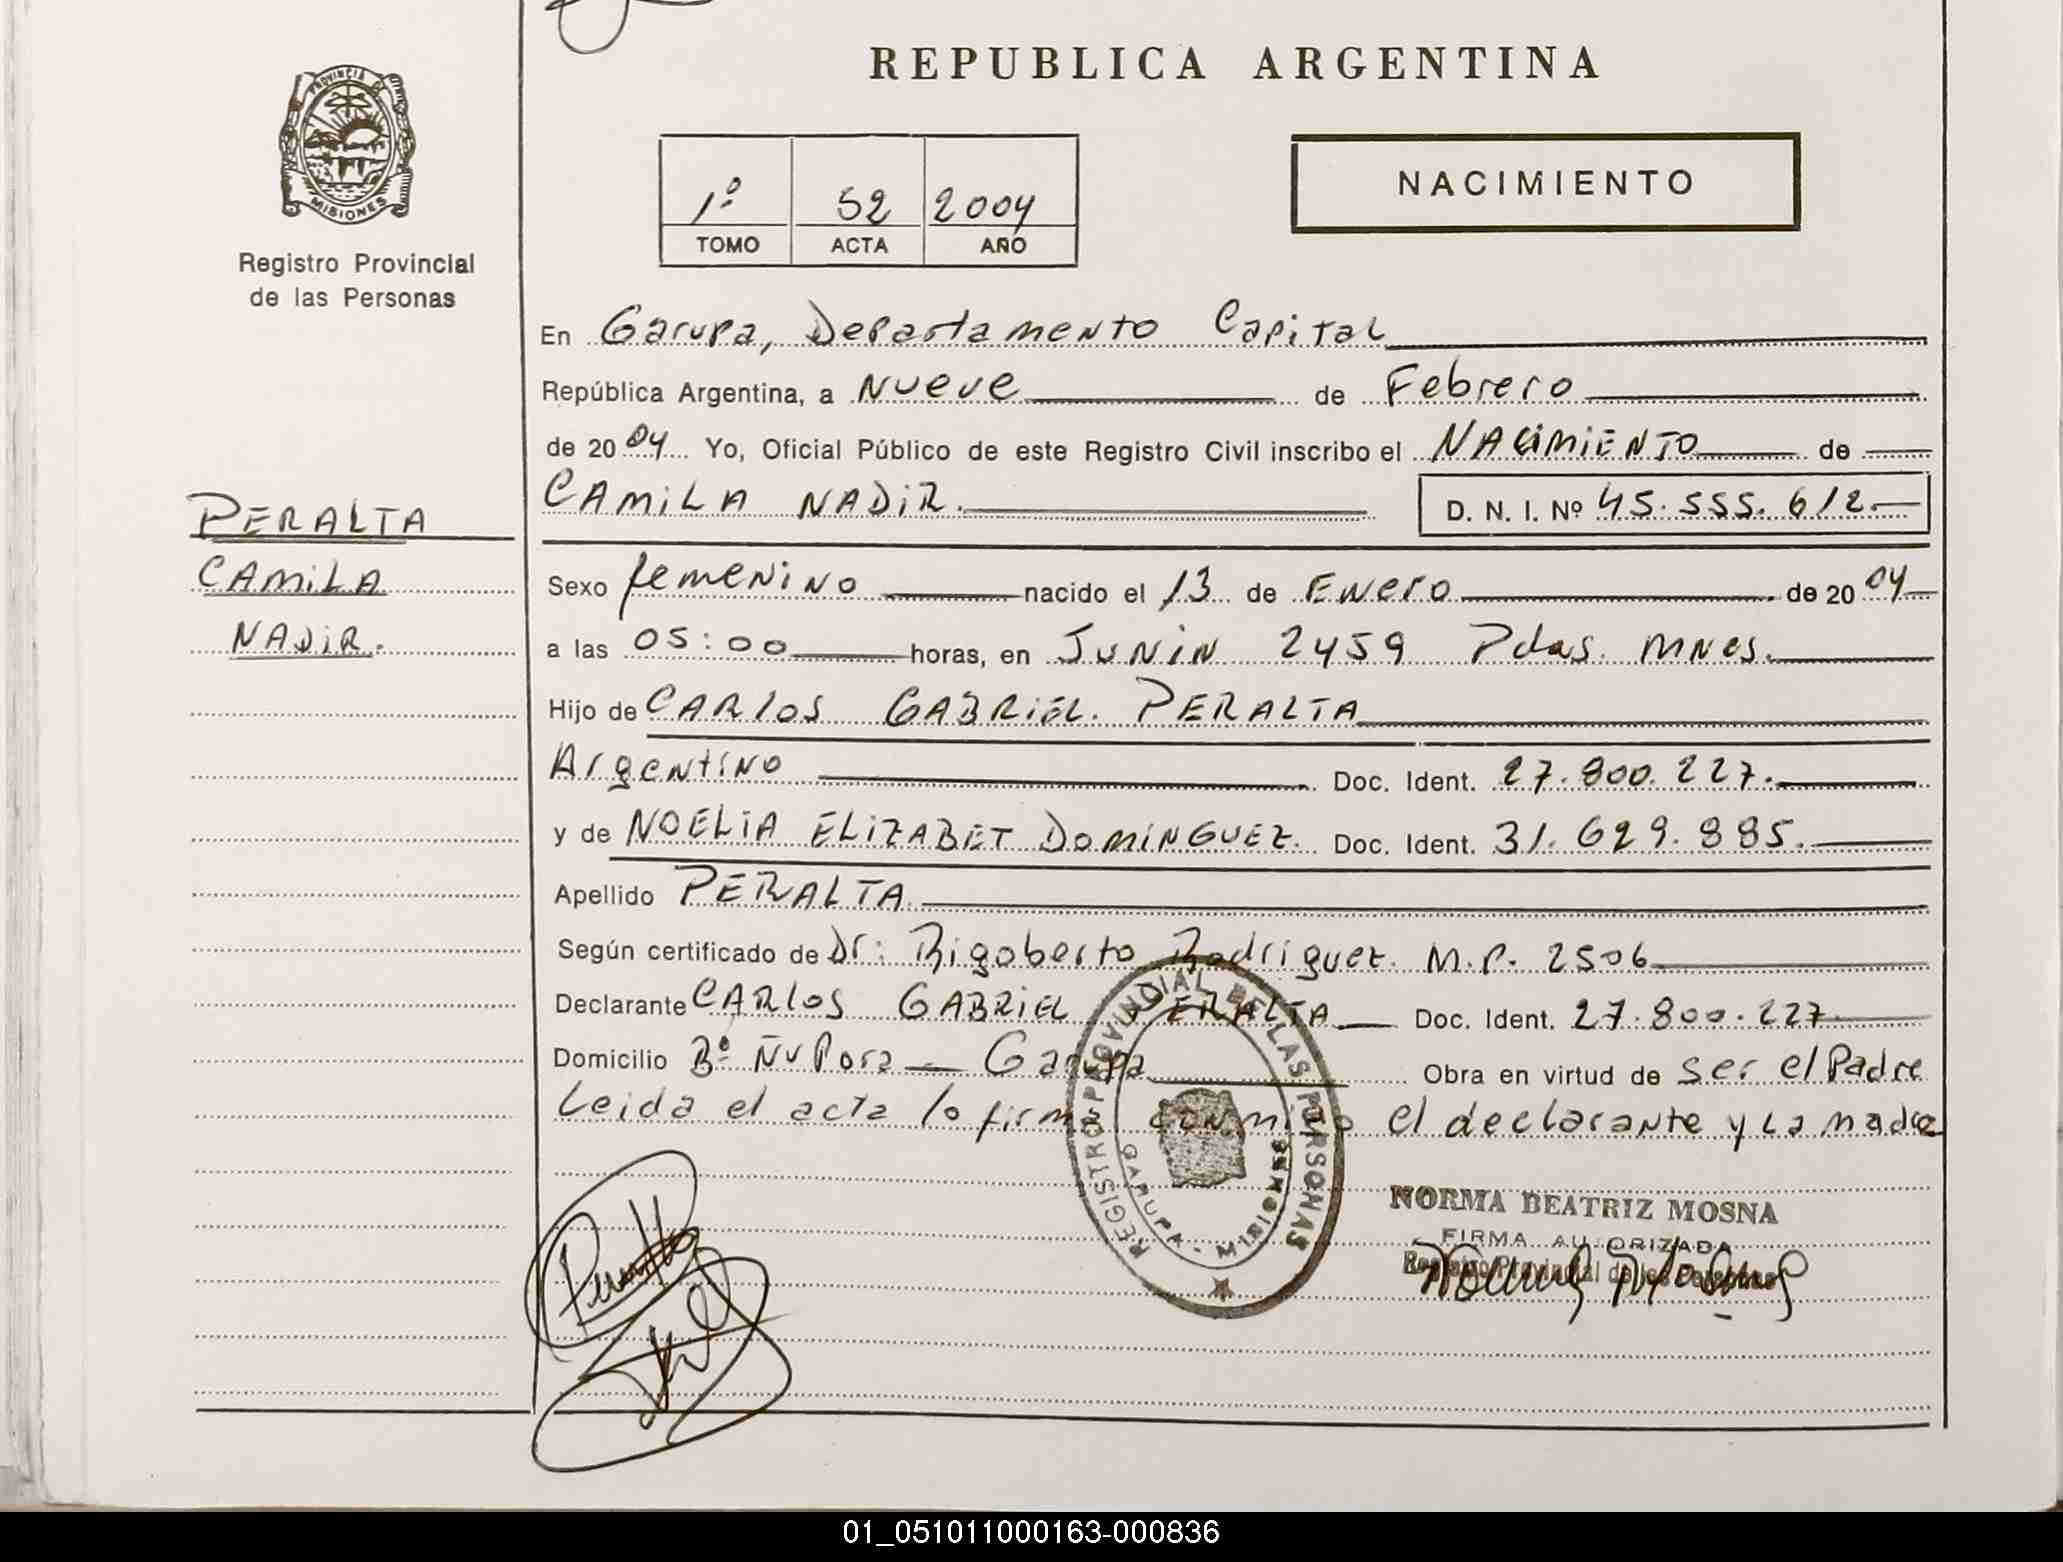 REPUBLICA ARGENTINA
PROVINCIA DE
MISIONES
Registro Provincial
de las Personas
1º 52 2004
TOMO ACTA AÑO
NACIMIENTO
En Garupa, Departamento Capital
República Argentina, a Nueve de Febrero
de 2004 Yo, Oficial Público de este Registro Civil inscribo el NACIMIENTO de
CAMILA NADIR. D. N. I. Nº 45.555.612.
PERALTA
CAMILA
NADIR.
Sexo femenino nacido el 13 de Enero de 2004
a las 05:00 horas, en Junin 2459 Pdas. Mnes.
Hijo de CARlos GABRIEL. PERALTA
Argentino Doc. Ident. 27.800.227.
y de NOELIA ELIZABET DOMINGUEZ. Doc. Ident. 31.629.885.
Apellido PERALTA
Según certificado de Dr: Rigoberto Rodriguez. M.P. 2506
Declarante CARLOS GABRIEL PERALTA Doc. Ident. 27.800.227
Domicilio Bº Ñu Pora — Garupa Obra en virtud de ser el Padre
Leida el acta lo firma conmigo el declarante y la madre
REGISTRO PROVINCIAL DE LAS PERSONAS
GARUPA - MISIONES
NORMA BEATRIZ MOSNA
FIRMA AUTORIZADA
Registro Provincial de las Personas
Peralta
01_051011000163-000836